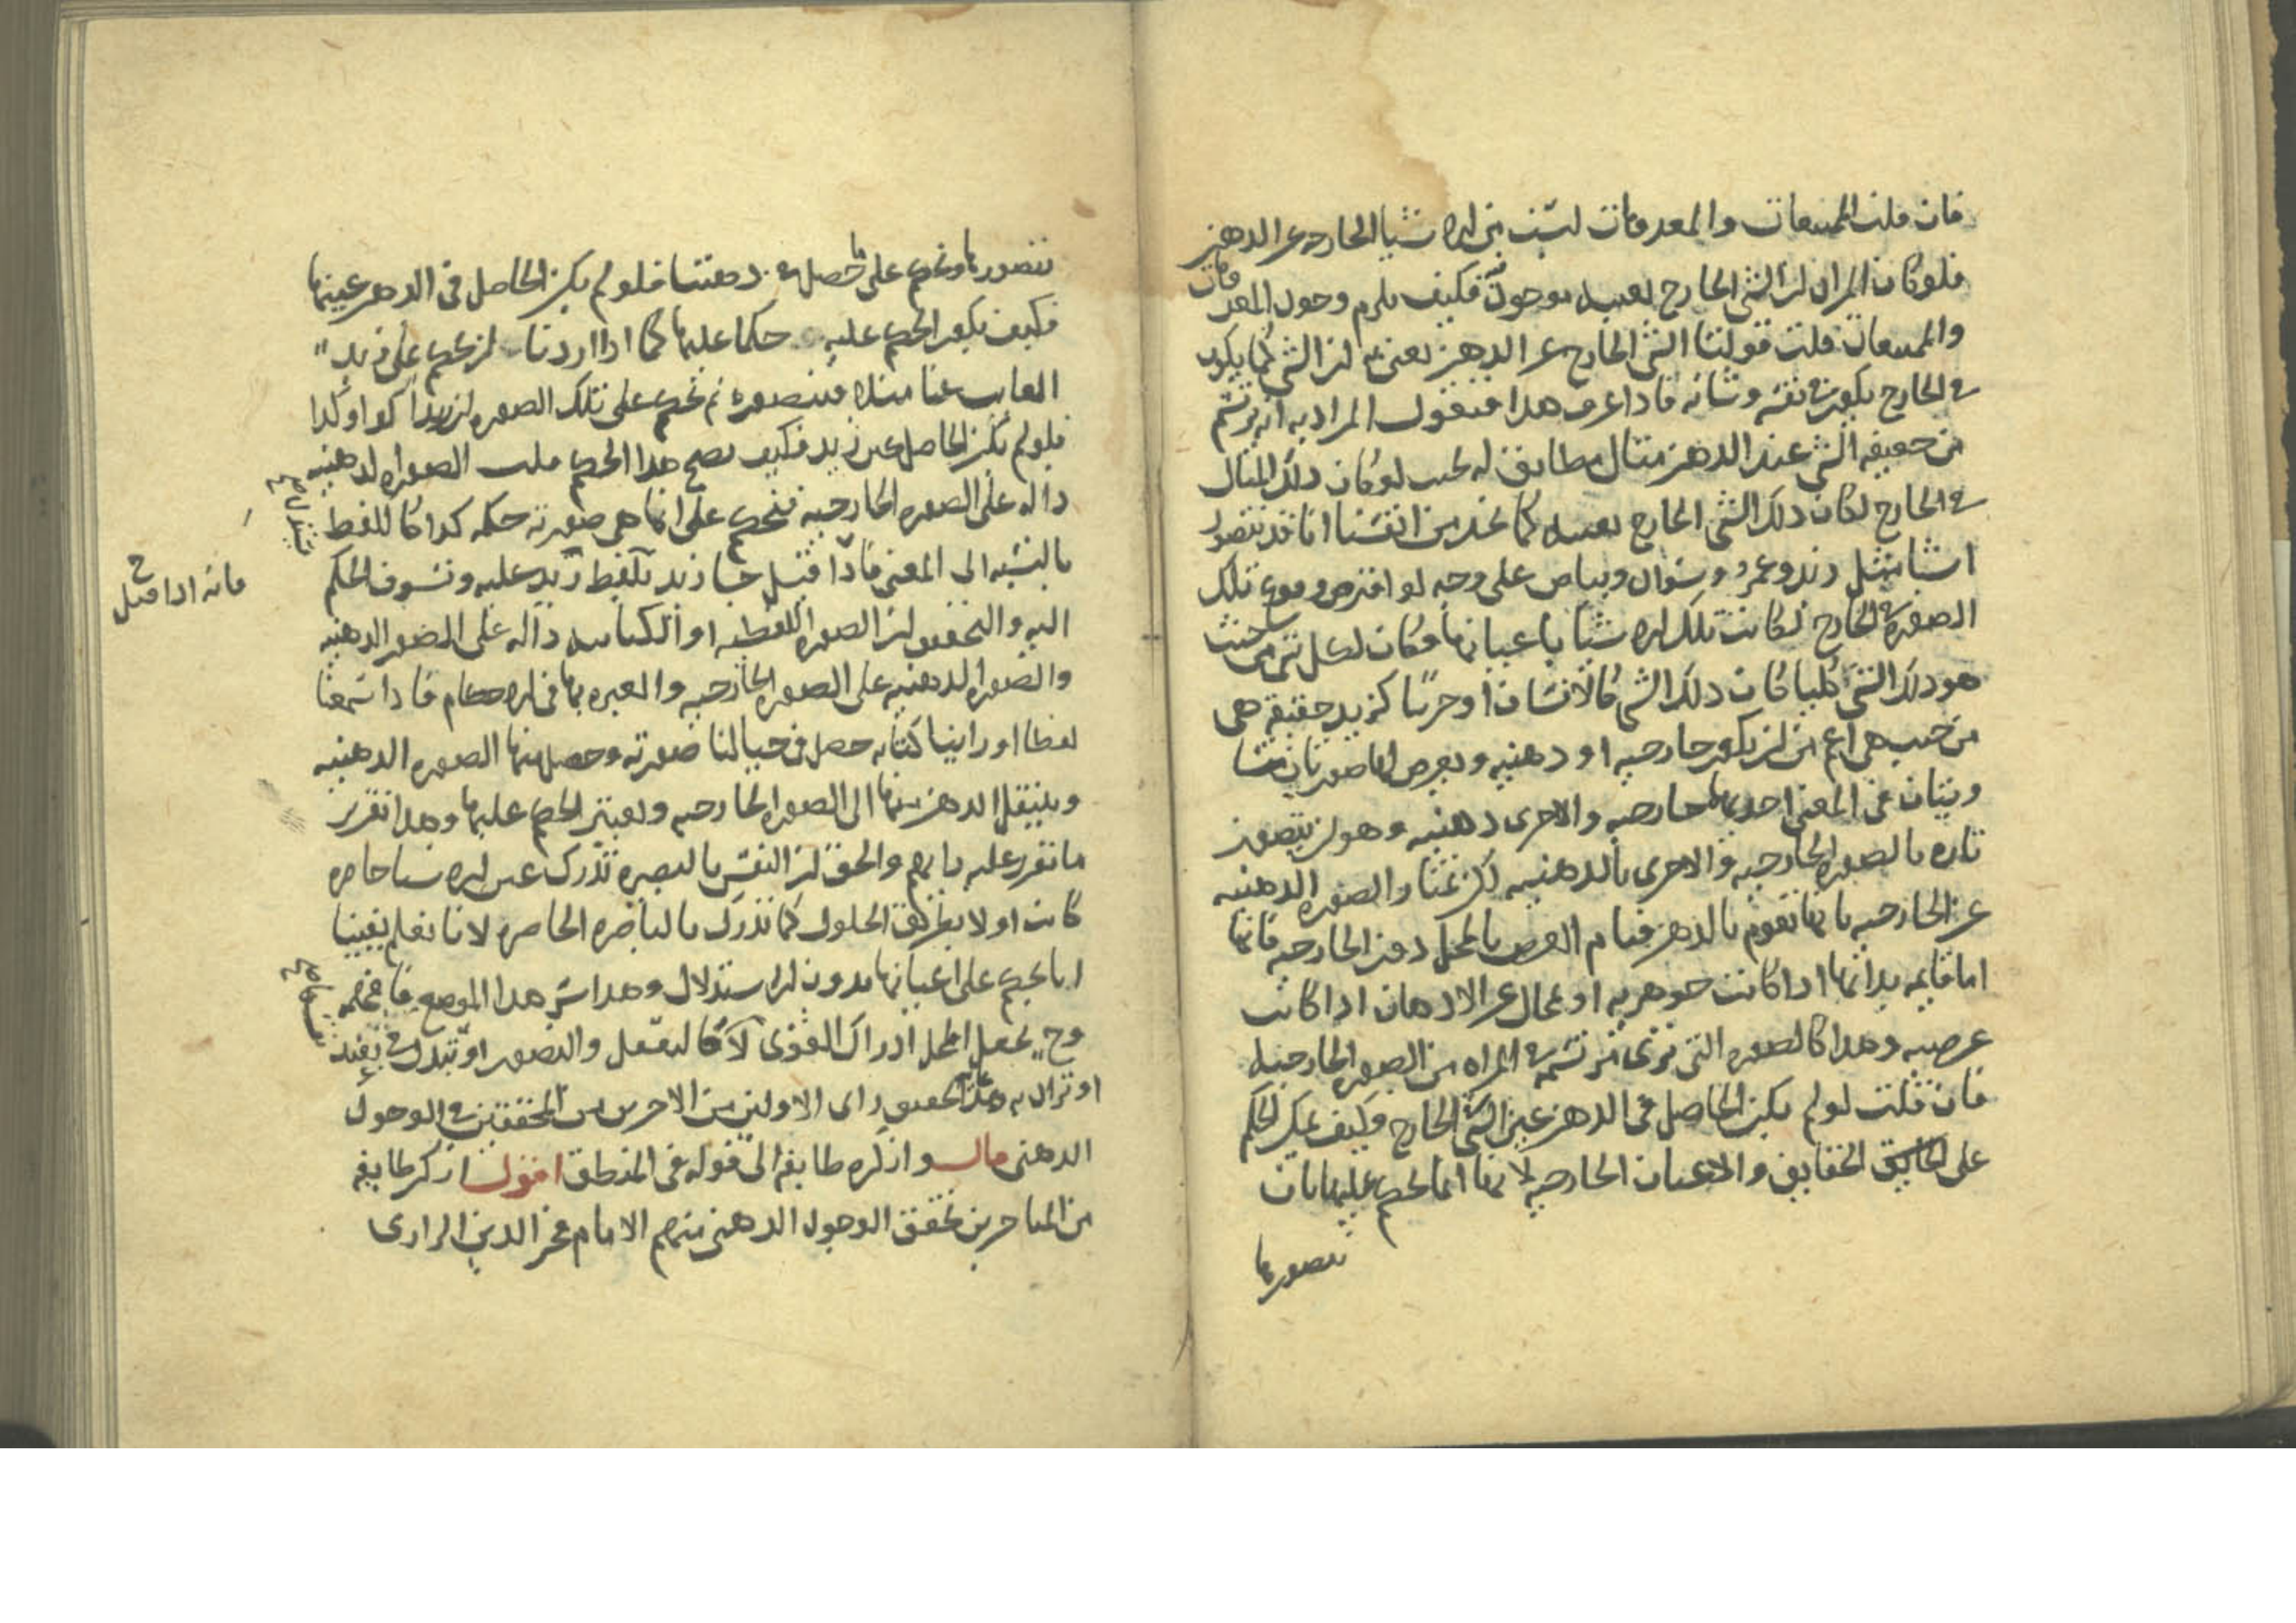 فان قلت الممتنعات والمعدومات ليست من الاشيا الخارجه عن الدهن
فلو كان المراد ان الشي الخارج بعينه موجود فكيف يلزم وجود المعدومات
والممتعات قلت قولنا الشي الخارج عن الدهن نعني به ان الشي كما يكون
في الخارج يكون في نفسه وشانه فادا عرف هدا فنقول المراد به انه يرتسم
من حقيقه الشي عند الدهن مثال مطابق له بحيث لو كان دلك المثال
في الخارج لكان دلك الشي الخارج بعينه كما نجد من انفسنا انا قد نتصور
اشيا مثل زيد وعمرو وسواد وبياض على وجه لو افترض وقوع تلك
الصوره في الخارج لكانت تلك الاشيا باعيانها فكان لكل شي من حيث
هو دلك الشي كليا كان دلك الشي كالانسان او جزييا كزيد حقيقه هي
من حيث هي اعم من ان يكون خارجيه او دهنيه ويعرض لها صورتان
في المعنى احديهما خارجيه والاخرى دهنيه وهو ان يتصور
تاره بالصوره الخارجيه والاخرى بالدهنيه لكن تمتاز الصوره الدهنيه
عن الخارجيه بانها تقوم بالدهن قيام العرض بالمحل دون الخارجيه فانها
اما قايمه بداتها ادا كانت جوهريه او بمحال غير الادهان ادا كانت
عرضيه وهدا كالصوره التي نرى مرتسمه في المراه من الصوره الخارجيه
فان قلت لو لم يكن الحاصل في الدهن عين الشي الخارج فكيف يمكن الحكم
على الحقايق والاعيان الخارجيه لانها انما نحكم عليها بان
نتصورها
نتصورها ونحكم على ما حصل في دهننا فلو لم يكن الحاصل في الدهن عينها
فكيف يكون الحكم عليه حكما عليها كما ادا اردنا ان نحكم على زيد
الغايب عنا مثلا فنتصوره ثم نحكم على تلك الصوره ان زيدا كدا وكدا
فلو لم يكن الحاصل عين زيد فكيف يصح هدا الحكم قلت الصوره الدهنيه
داله على الصوره الخارجيه فنحكم على ان ما هي صورته حكمه كدا كاللفظ
بالنسبه الى المعنى فادا قيل جا زيد تلفظ زيد عليه ونسوق الحكم
فانه ادا قيل
اليه والتحقيق ان الصوره اللفظيه او الكتابيه داله على الصور الدهنيه
والصوره الدهنيه على الصوره الخارجيه والعبره بها في الاحكام فادا سمعنا
لفظا او راينا كتابه حصل في خيالنا صورته وحصل منها الصوره الدهنيه
وينتقل الدهن منها الى الصوره الخارجيه ويعتبر الحكم عليها وهدا تقرير
ما تقرر عليه رايهم والحق ان النفس بالبصيره تدرك عين الاشيا حاضره
كانت او لا بطريق الحلول كما تدرك بالباصره الحاضره لانا نعلم يقينا
انا نحكم على اعيانها بدون الاستدلال وهدا سر هدا الموضع فافهمه
وح يحمل المحل ادراك القوى كالتعقل والتصور او تبدل في
او تزال به وهدا تحقيق راى الاولين من الاخرين من المحققين في الوجود
الدهنى قال وانكره طايفه الى قوله في المنطق اقول انكر طايفه
من المتاخرين تحقق الوجود الدهنى منهم الامام فخر الدين الرازى